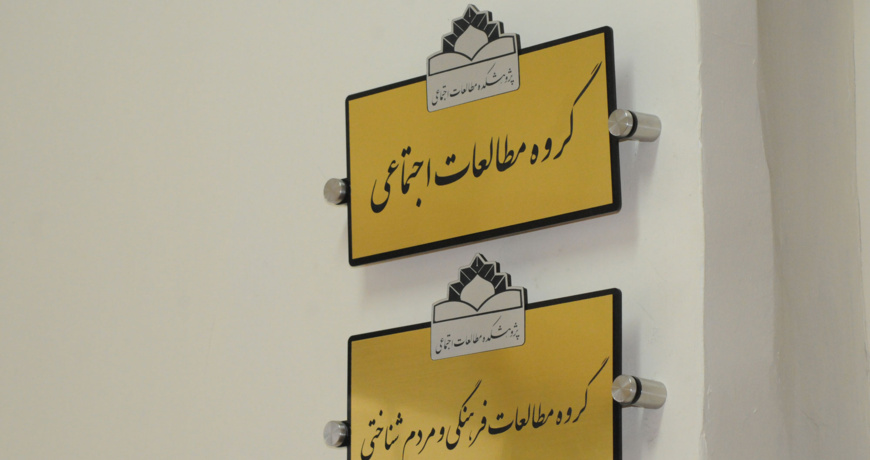 پژوهشکده مطالعات اجتماعی
گروه مطالعات اجتماعی
پژوهشکده مطالعات اجتماعی
گروه مطالعات فرهنگی و مردم شناختی